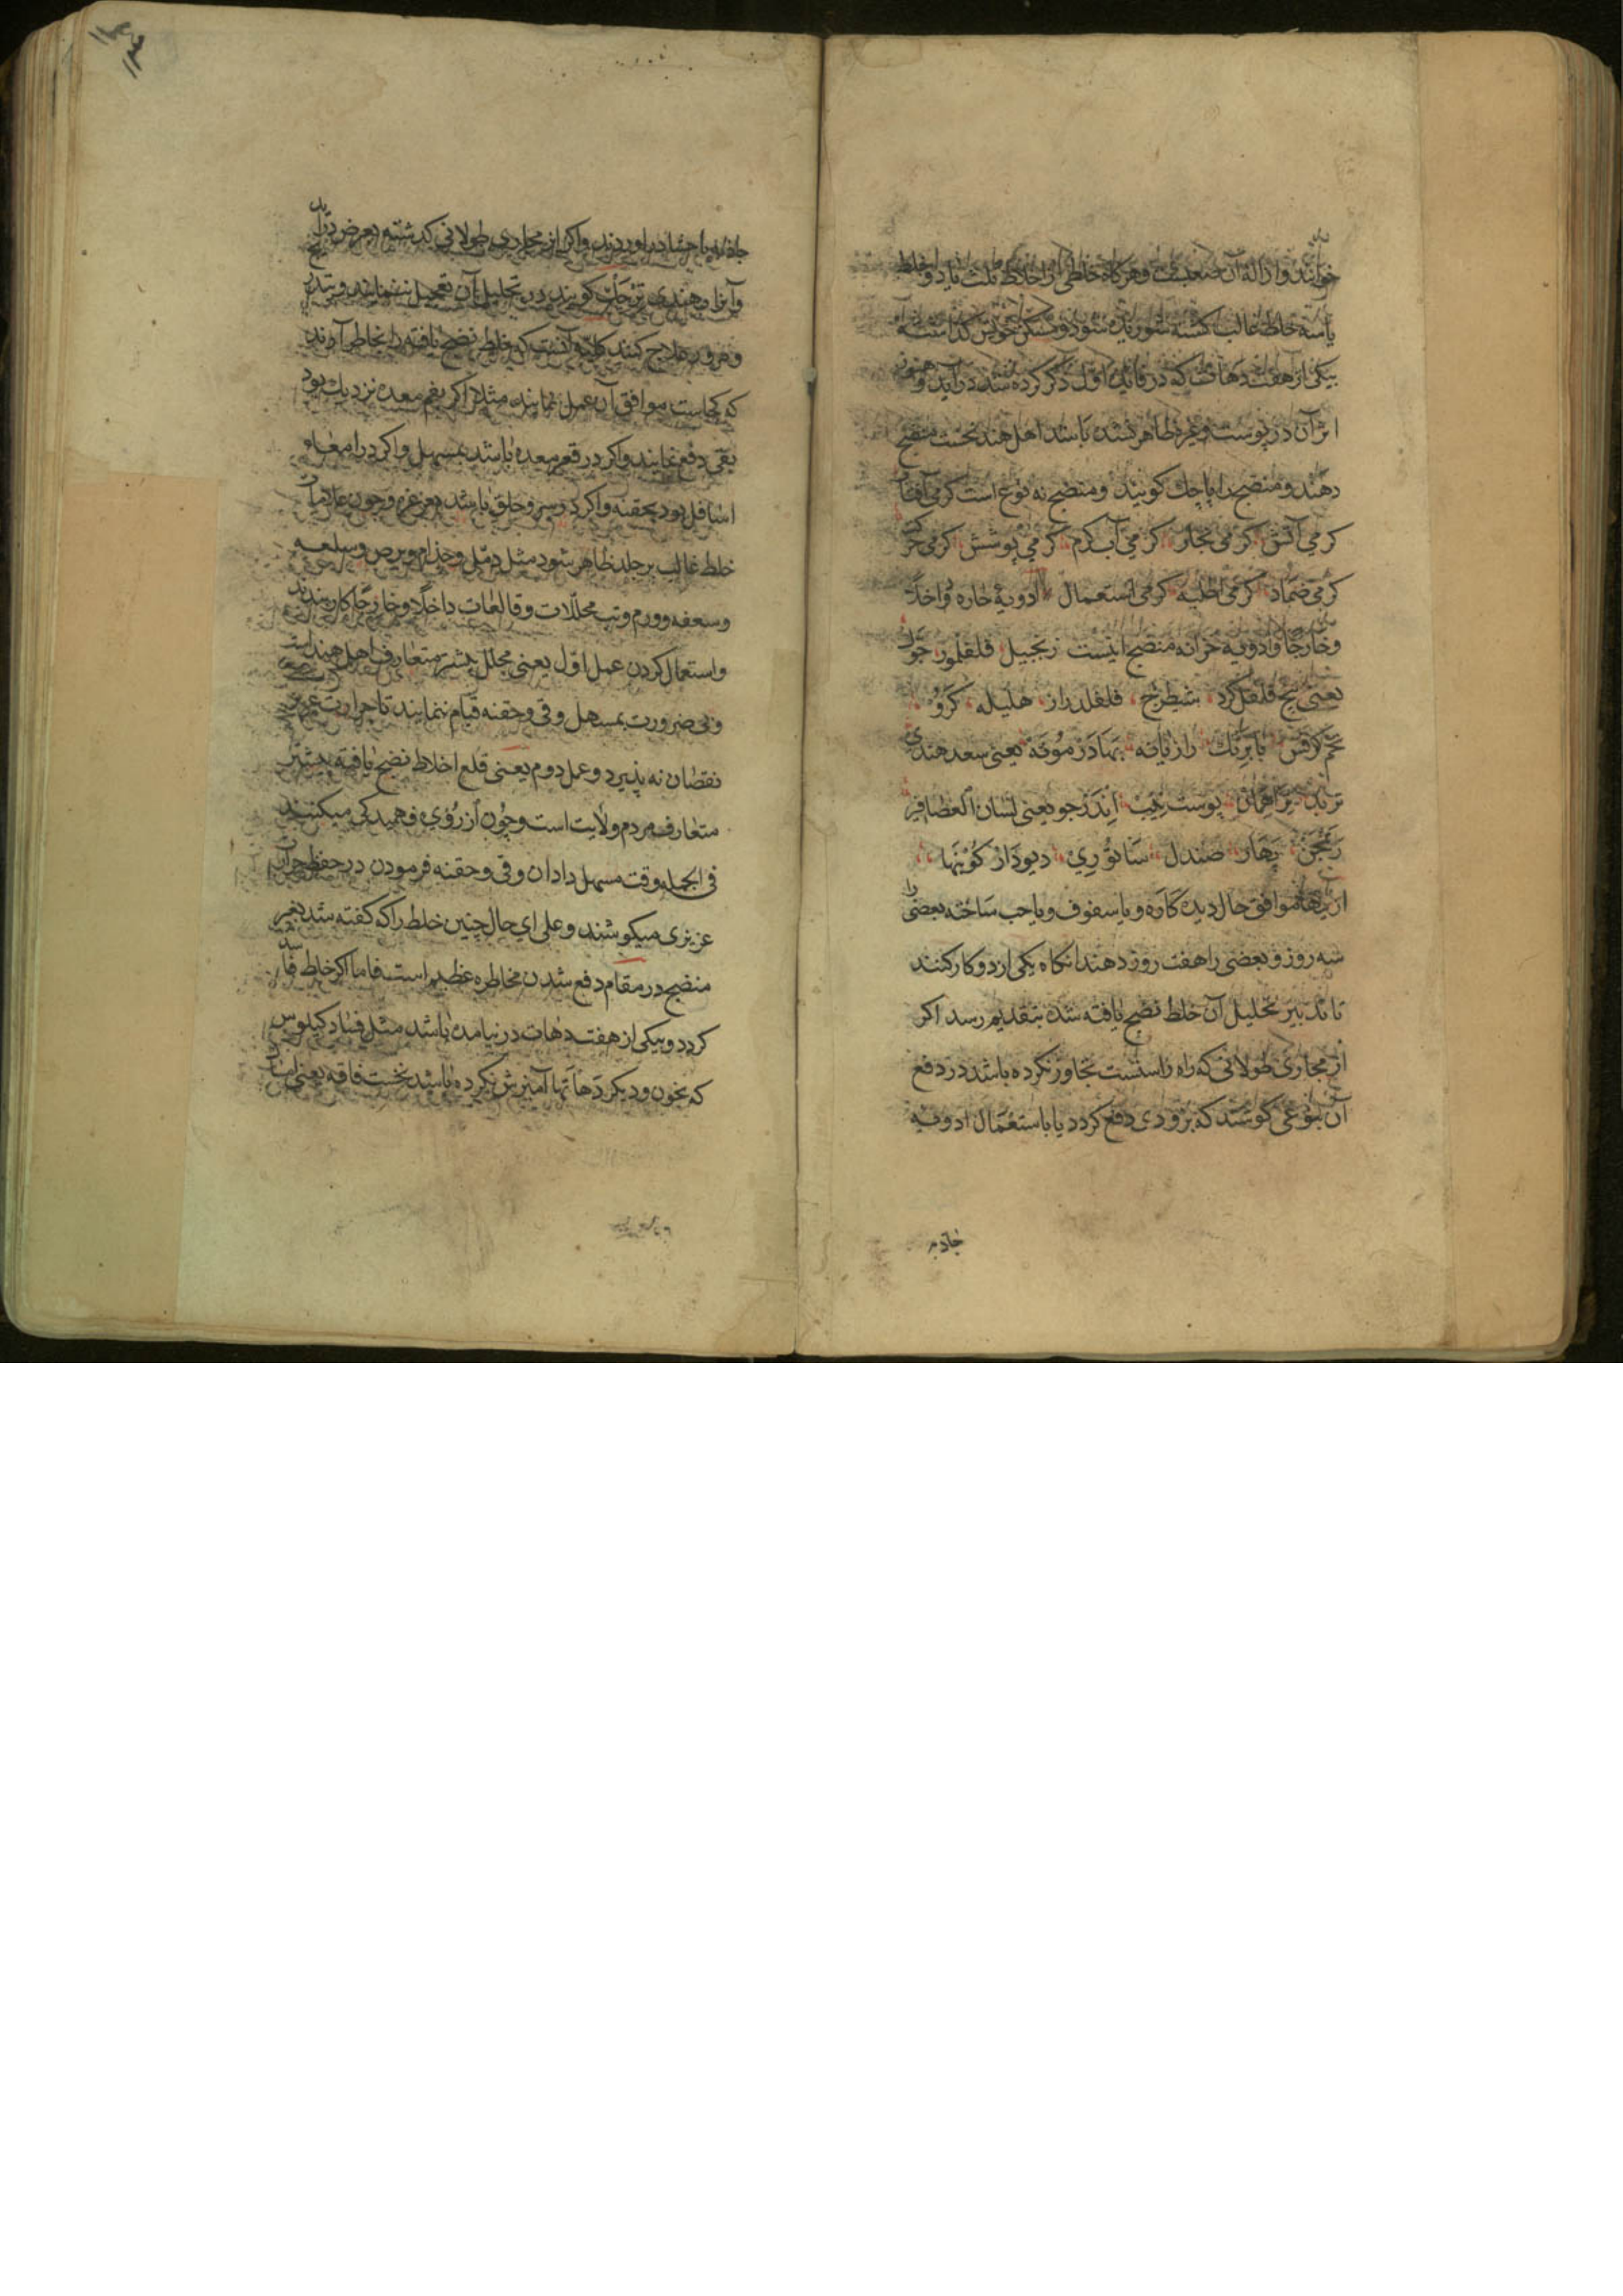 خوانند و ازاله آن صعب است و هرگاه خلطی از اخلاط ثلث یا دو خلط
یا سه خلط غالب گشته شوریده شود و مسکن خویش گذاشته
بیکی از هفت دهات که در فایده اول ذکر کرده شد درآید و هنوز
اثر آن در پوست و غیره ظاهر نشده باشد اهل هند نخست منضج
دهند و منضج را پاچك کویند و منضج نه نوع است کرمی آفتاب
کرمی آتش کرمی بخار کرمی آب کرم کرمی پوشش کرمی
کرمی ضماد کرمی اطلیه کرمی استعمال ادویهٔ حاره داخلا
و خارجا و ادویه منضج اینست زنجبیل فلفلمور
یعنی بیخ فلفل کرد شیطرج فلفلدراز هلیله کرو
تخم کرفس بابرنك رازیانه بهادرموته یعنی سعد هندی
تربد پوست اندرجو یعنی لسان العصافیر
بهار صندل دیودار
ازینها موافق حال دیده کاره و یا سفوف و یا حب ساخته بعضی را
سه روز و بعضی را هفت روز دهند انکاه یکی از دو کار کنند
تا تدبیر تحلیل آن خلط نضج یافته شده بتقدیم رسد اکر
از مجاری طولانی که راه راستست تجاوز نکرده باشد در دفع
آن بنوعی کوشند که بزودی دفع کردد یا باستعمال ادویه
جاذبه
جاذبه یا درآوردند و اکر از مجاری طولانی کذشته بعرض درآید
و آنرا بهندی کویند در تحلیل آن تعجیل ننمایند و بتدریج
و مرور علاج کنند کلیه آنست که خلط نضج یافته را بخاطر آرند
که کجاست موافق آن عمل نمایند مثلا اکر بفم معده نزدیك بود
بقی دفع نمایند و اکر در قعر معده باشد بمسهل و اکر در امعاء
اسافل بود بحقنه و اکر در سر و حلق باشد بغرغره و چون علامات
خلط غالب بر جلد ظاهر شود مثل دمل و جذام و برص و سلعه
و سعفه و ورم و تب محللات و قالعات داخلا و خارجا کار بندند
و استعمال کردن عمل اول یعنی محلل بیشتر متعارف اهل هند است
و بی ضرورت بمسهل و قی و حقنه قیام ننمایند تا حرارت غریزی
نقصان نه پذیرد و عمل دوم یعنی قلع اخلاط نضج یافته بیشتر
متعارف مردم ولایت است و چون از روی فهمیدکی میکنند
فی الجمله وقت مسهل دادان و قی و حقنه فرمودن در حفظ حرارت
عزیزی میکوشند و علی ای حال چنین خلط را که کفته شد بغیر
منضج در مقام دفع شدن مخاطره عظیم است فاما اکر خلط فاسد
کردد و بیکی از هفت دهات در نیامده باشد مثل فساد کیلوس
که بخون و دیکر دهاتها آمیزش نکرده باشد نخست فاقه یعنی